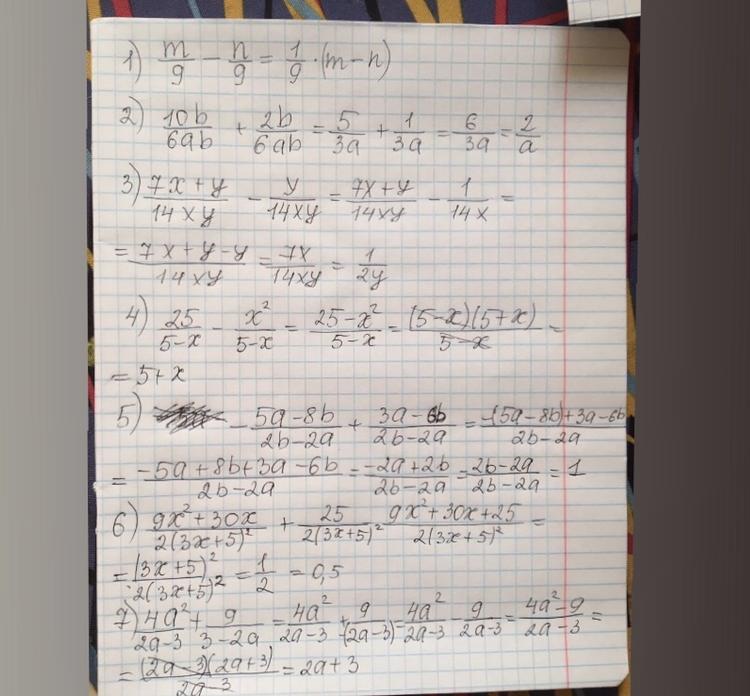 1) m/9 − n/9 = 1/9 · (m − n)
2) 10b/6ab + 2b/6ab = 5/3a + 1/3a = 6/3a = 2/a
3) 7x+y/14xy − y/14xy = 7x+y/14xy − 1/14x =
= 7x+y−y/14xy = 7x/14xy = 1/2y
4) 25/5−x − x²/5−x = 25−x²/5−x = (5−x)(5+x)/5−x =
= 5+x
5) − 5a−8b/2b−2a + 3a−6b/2b−2a = −(5a−8b)+3a−6b/2b−2a
= −5a+8b+3a−6b/2b−2a = −2a+2b/2b−2a = 2b−2a/2b−2a = 1
6) 9x²+30x/2(3x+5)² + 25/2(3x+5)² = 9x²+30x+25/2(3x+5)² =
= (3x+5)²/2(3x+5)² = 1/2 = 0,5
7) 4a²/2a−3 + 9/3−2a = 4a²/2a−3 + 9/−(2a−3) = 4a²/2a−3 − 9/2a−3 = 4a²−9/2a−3 =
= (2a−3)(2a+3)/2a−3 = 2a+3